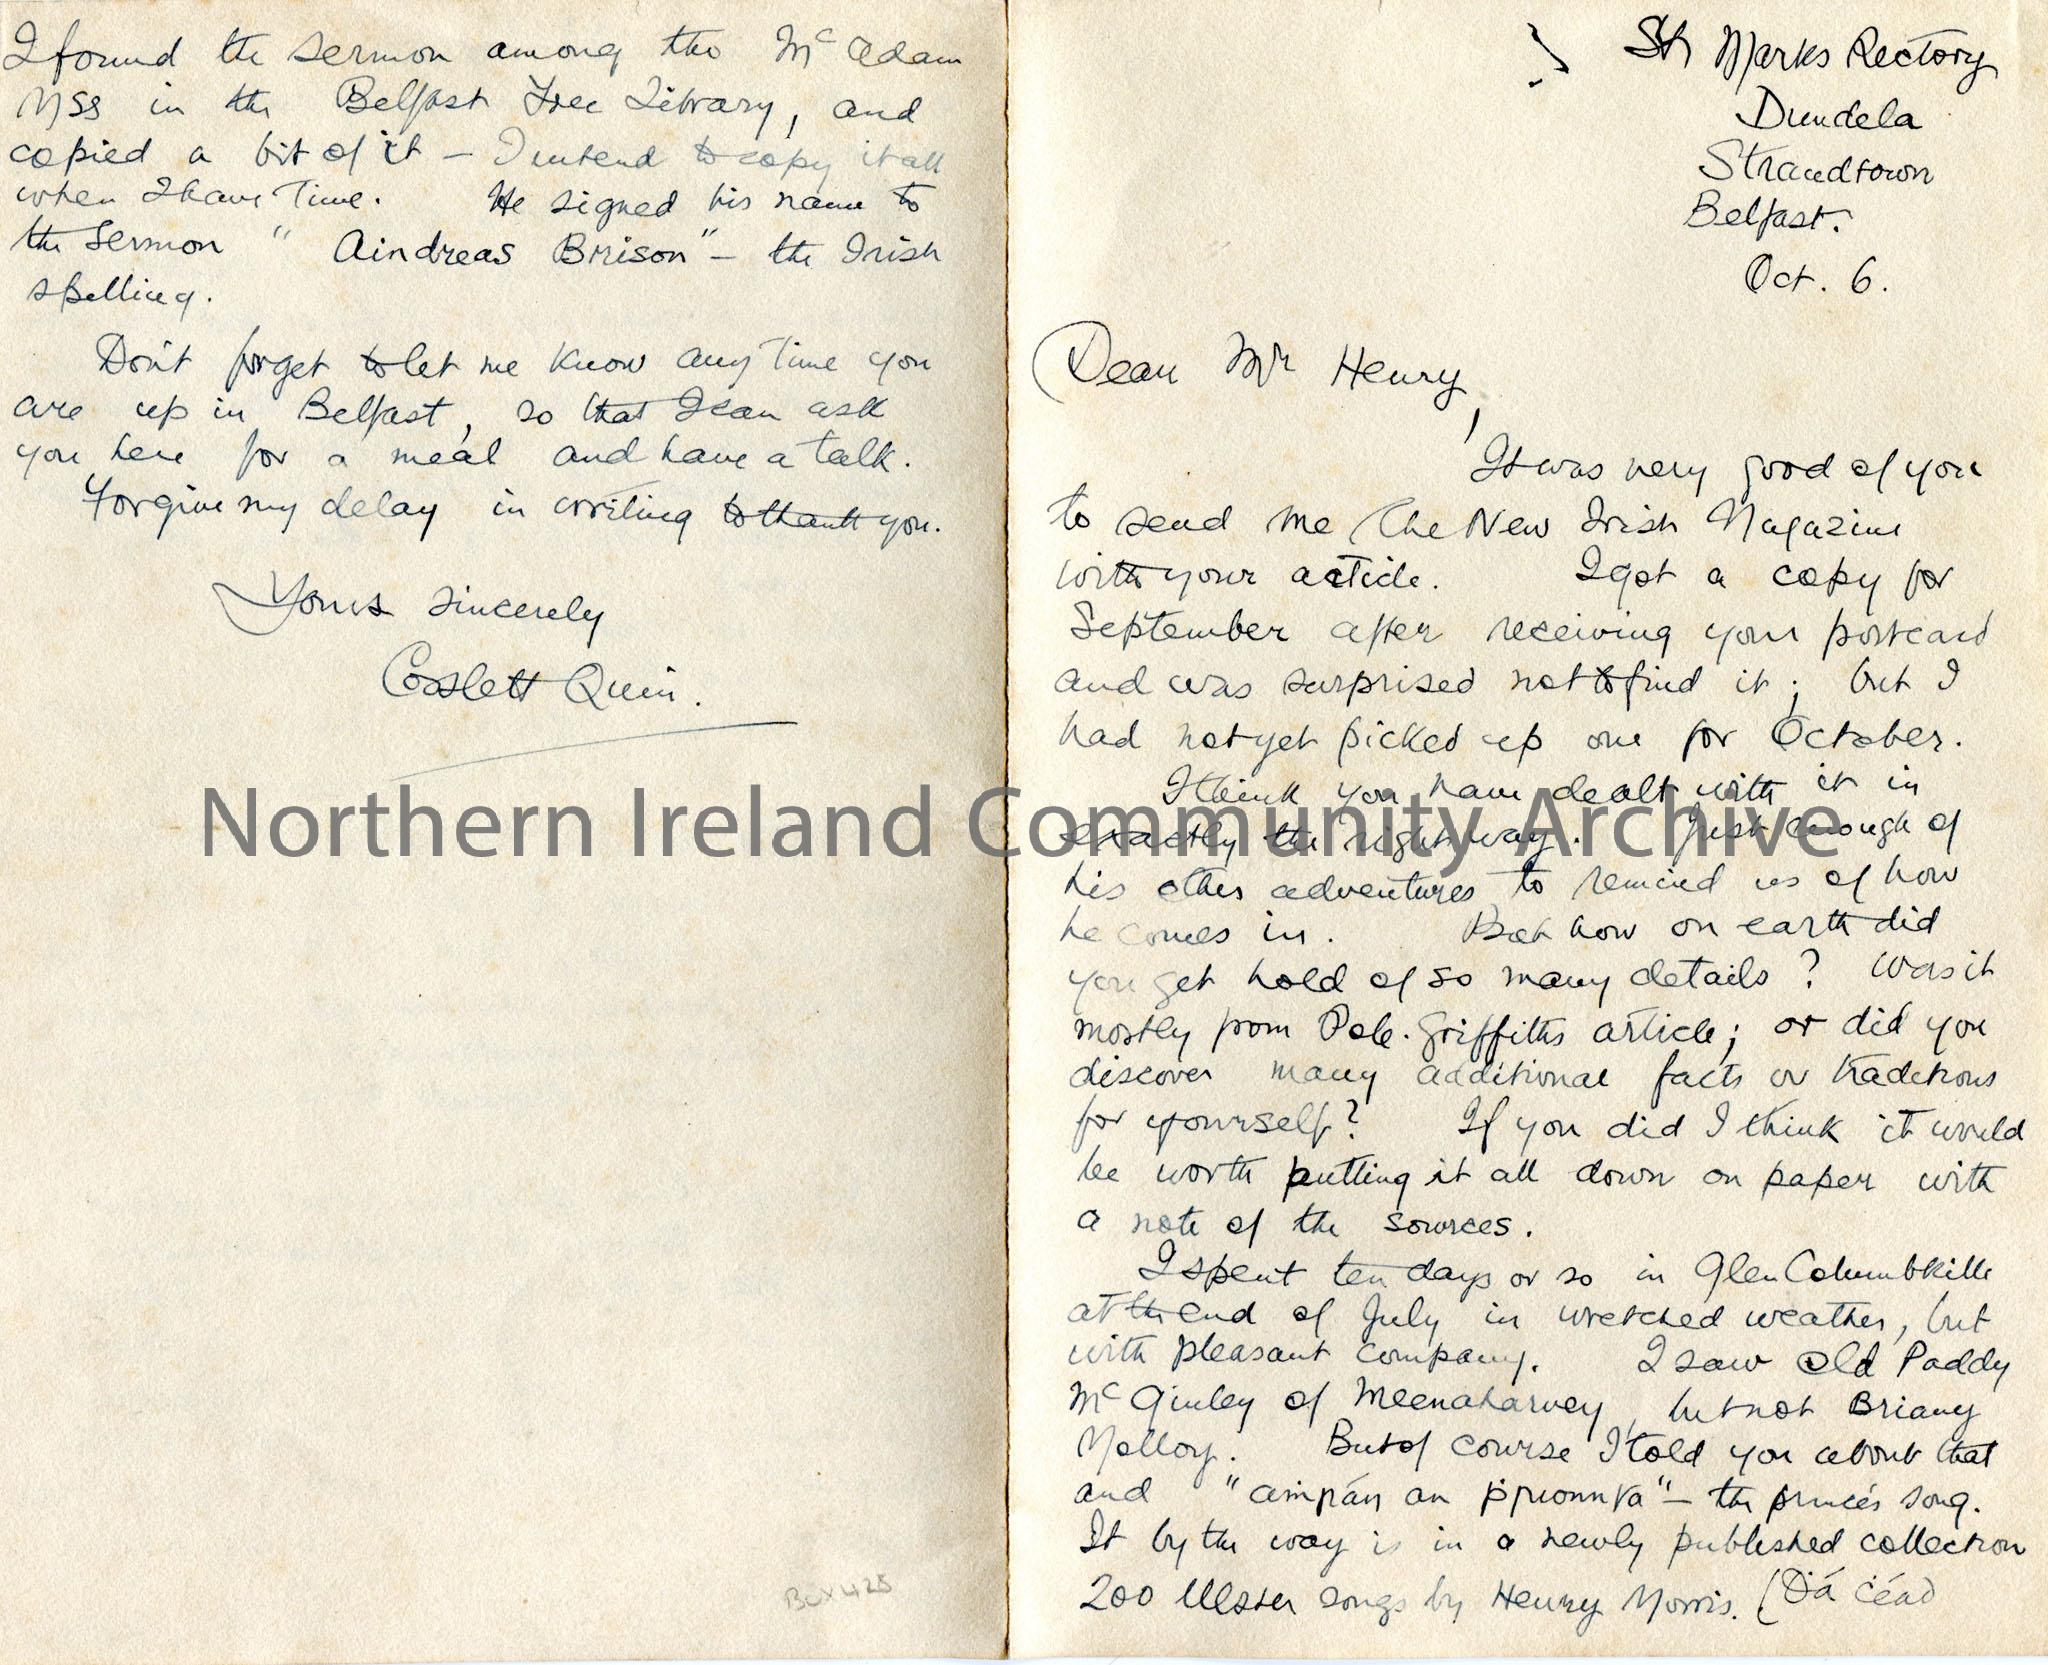 St Marks Rectory
Dundela
Strandtown
Belfast.
Oct. 6.
Dear Mr Henry,
It was very good of you
to send me The New Irish Magazine
with your article. I got a copy for
September after receiving your postcard
and was surprised not to find it; but I
had not yet picked up one for October.
I think you have dealt with it in
exactly the right way. Just enough of
his other adventures to remind us of how
he comes in. But how on earth did
you get hold of so many details? Was it
mostly from Griffiths article; or did you
discover many additional facts or traditions
for yourself? If you did I think it would
be worth putting it all down on paper with
a note of the sources.
I spent ten days or so in Glen Columbkille
at the end of July in wretched weather, but
with pleasant company. I saw old Paddy
McGinley of Meenaharvey, but not Briany
Molloy. But of course I told you about that
and " an ṗrionnsa" – the prince's song.
It by the way is in a newly published collection
200 Ulster songs by Henry Morris. (Dá ċéad
I found the sermon among the McAdam
MSS in the Belfast Free Library, and
copied a bit of it – I intend to copy it all
when I have time. He signed his name to
the sermon "Aindreas Brison" – the Irish
spelling.
Don't forget to let me know any time you
are up in Belfast, so that I can ask
you here for a meal and have a talk.
Forgive my delay in writing to thank you.
Yours sincerely
Coslett Quin.
Box 425
Northern Ireland Community Archive